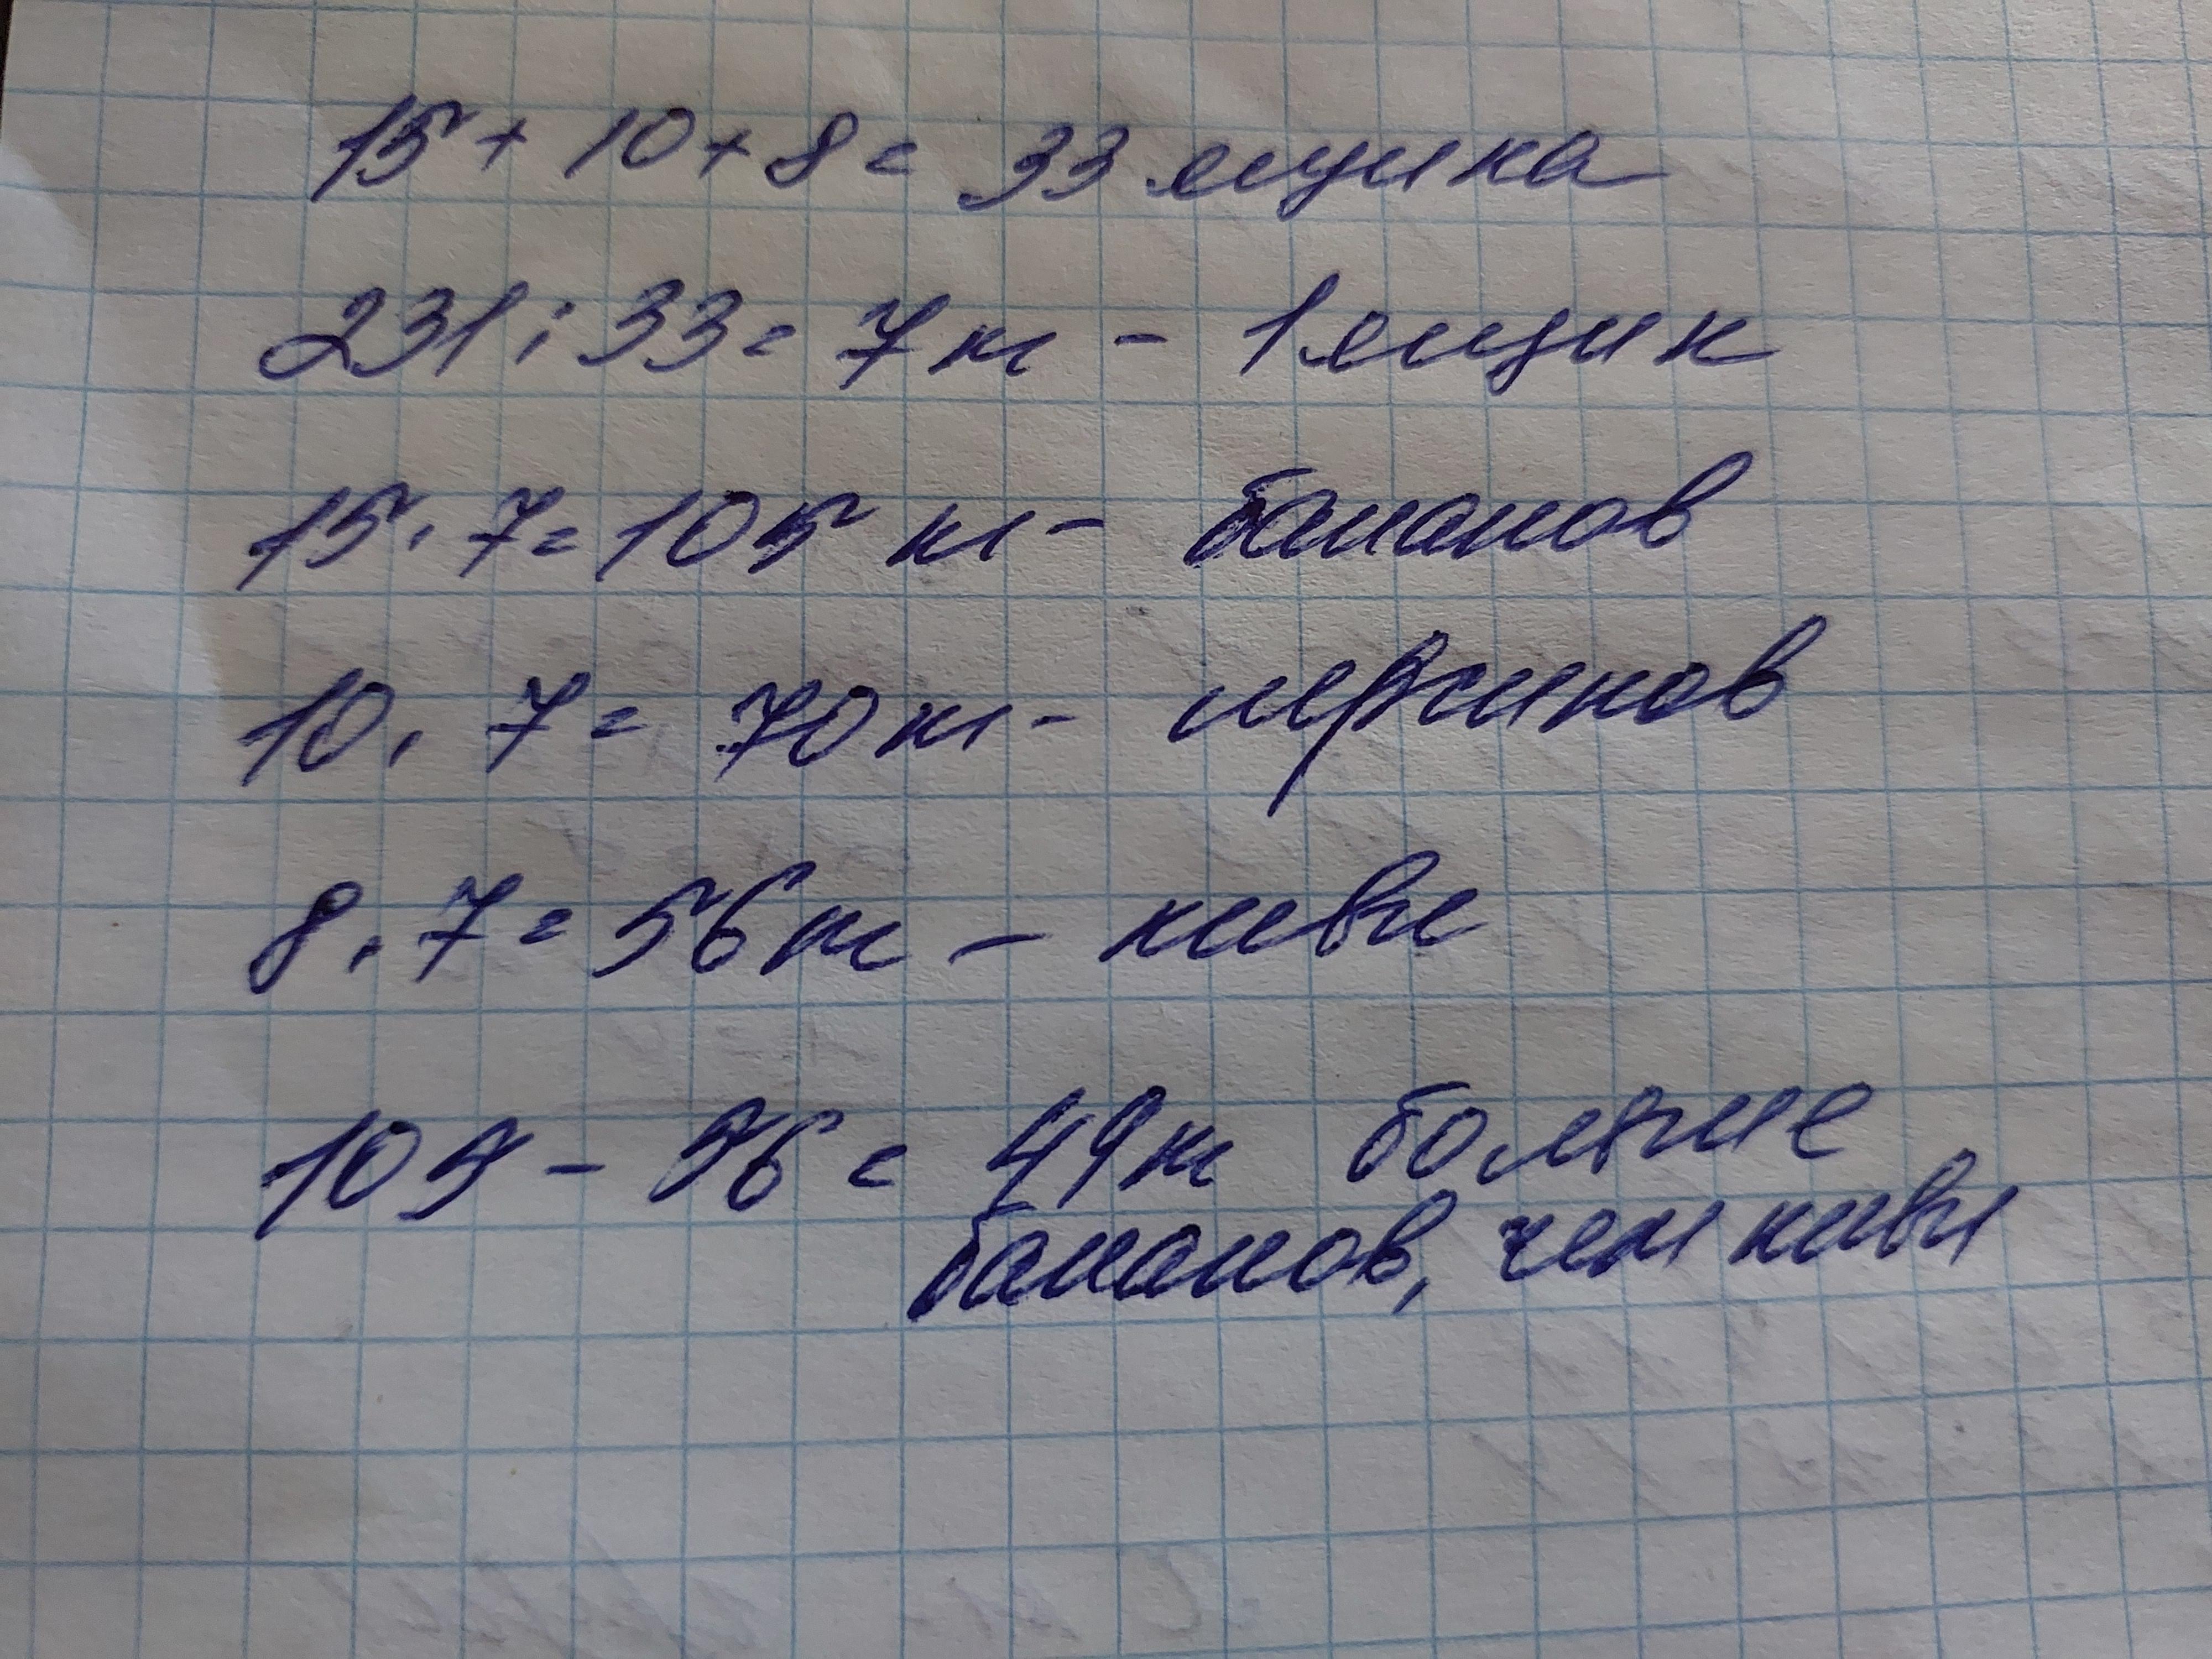 15 + 10 + 8 = 33 ящика
231 : 33 = 7 кг - 1 ящик
15 . 7 = 105 кг - бананов
10 . 7 = 70 кг -
8 . 7 = 56 кг - киви
105 - 56 = 49 кг больше
бананов, чем киви